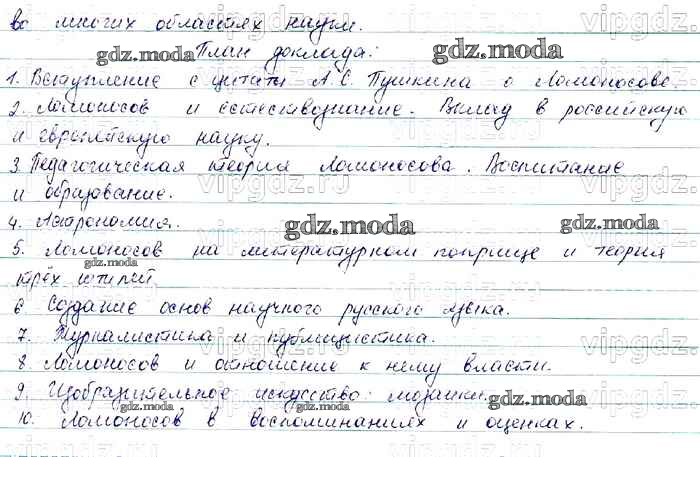 во многих областях науки.
План доклада:
1. Вступление с цитаты А.С. Пушкина о Ломоносове.
2. Ломоносов и естествознание. Вклад в российскую
и европейскую науку.
3. Педагогическая теория Ломоносова. Воспитание
и образование.
4. Астрономия.
5. Ломоносов на литературном поприще и теория
трёх штилей
6 Создание основ научного русского языка.
7. Журналистика и публицистика.
8. Ломоносов и отношение к нему власти.
9. Изобразительное искусство: мозаики.
10. Ломоносов в воспоминаниях и оценках.
gdz.moda
gdz.moda
gdz.moda
gdz.moda
gdz.moda
gdz.moda
gdz.moda
gdz.moda
gdz.moda
gdz.moda
vipgdz.ru